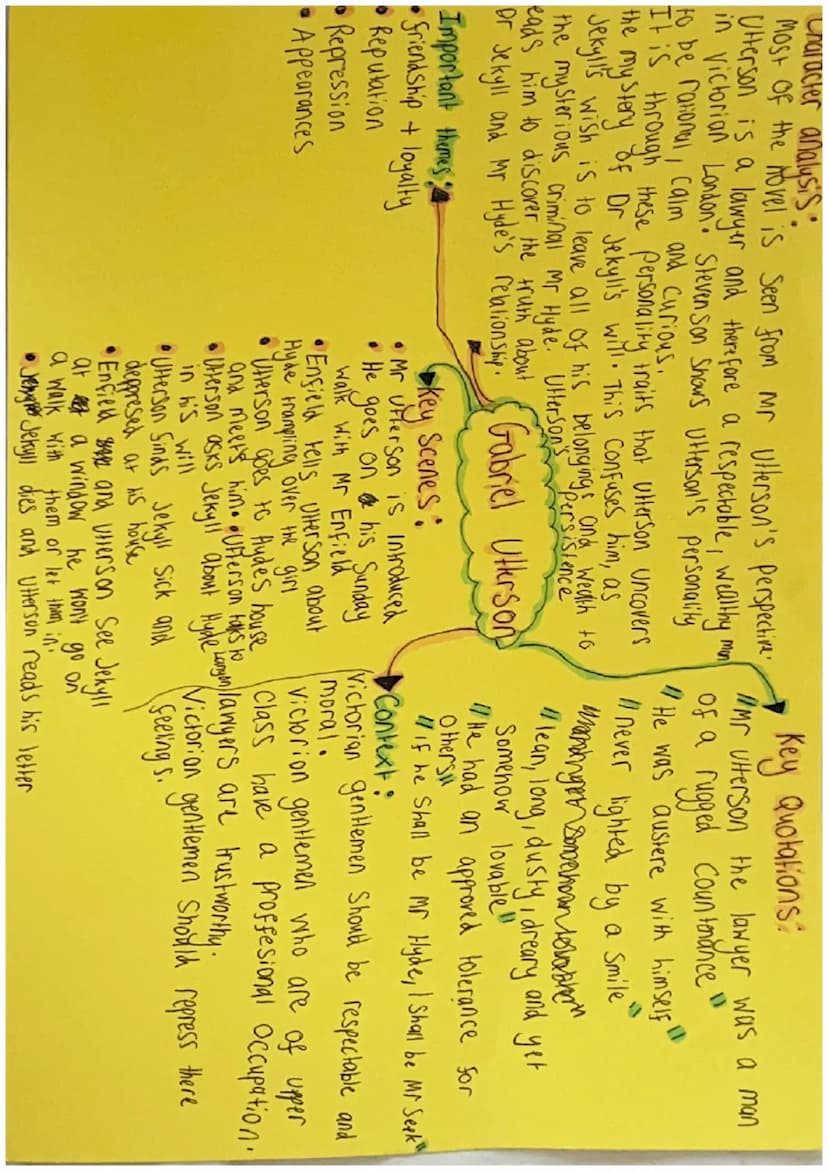 Character analysis:
Most of the novel is seen from Mr Utterson's perspective.
Utterson is a lawyer and therefore a respectable, wealthy man
in Victorian London. Stevenson shows Utterson's personality
to be rational, calm and curious.
It is through these personality traits that Utterson uncovers
the mystery of Dr Jekyll's will. This confuses him, as
Jekyll's wish is to leave all of his belongings and wealth to
the mysterious criminal Mr Hyde. Utterson's persistence
leads him to discover the truth about
Dr Jekyll and Mr Hyde's relationship.
Important themes:
• friendship + loyalty
• Reputation
• Repression
• Appearances
Gabriel Utterson
Key Scenes:
• Mr Utterson is introduced
• He goes on his Sunday
walk with Mr Enfield
• Enfield tells Utterson about
Hyde trampling over the girl
• Utterson goes to Hyde's house
and meets him. • Utterson talks to Lanyon
• Utterson asks Jekyll about Hyde
in his will
• Utterson finds Jekyll sick and
depressed at his house
• Enfield and Utterson see Jekyll
at a window he won't go on
a walk with them or let them in.
• Jekyll dies and Utterson reads his letter
Key Quotations:
"Mr Utterson the lawyer was a man
of a rugged countenance"
"He was austere with himself"
"never lighted by a smile"
"lean, long, dusty, dreary and yet
somehow lovable"
"He had an approved tolerance for
others"
"if he shall be Mr Hyde, I shall be Mr Seek"
Context:
Victorian gentlemen should be respectable and
moral.
Victorian gentlemen who are of upper
class have a proffesional occupation.
lawyers are trustworthy.
Victorian gentlemen should repress there
feelings.